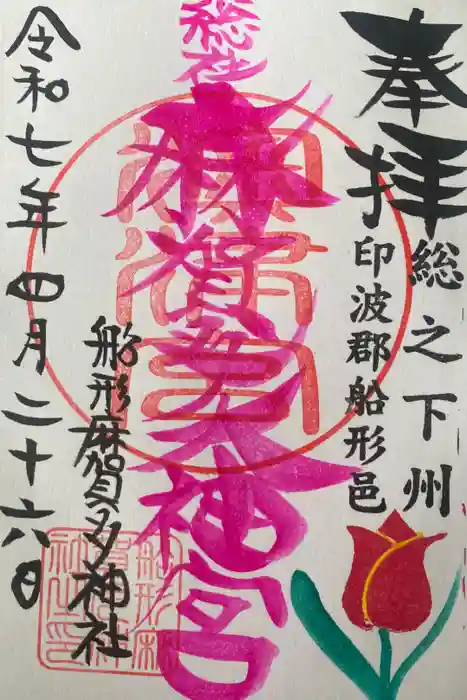 奉拝
総之下州
印波郡船形邑
総社
麻賀多大神宮
船形麻賀多神社
令和七年四月二十六日